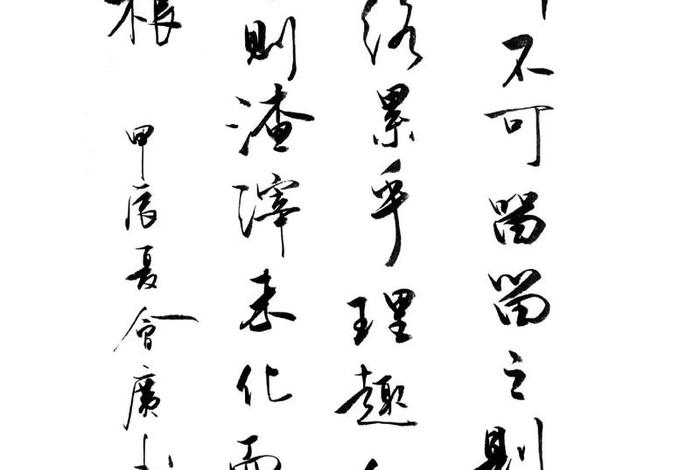 不可留留之則
終累乎理趣
則渣滓未化而
根
甲辰夏會廣